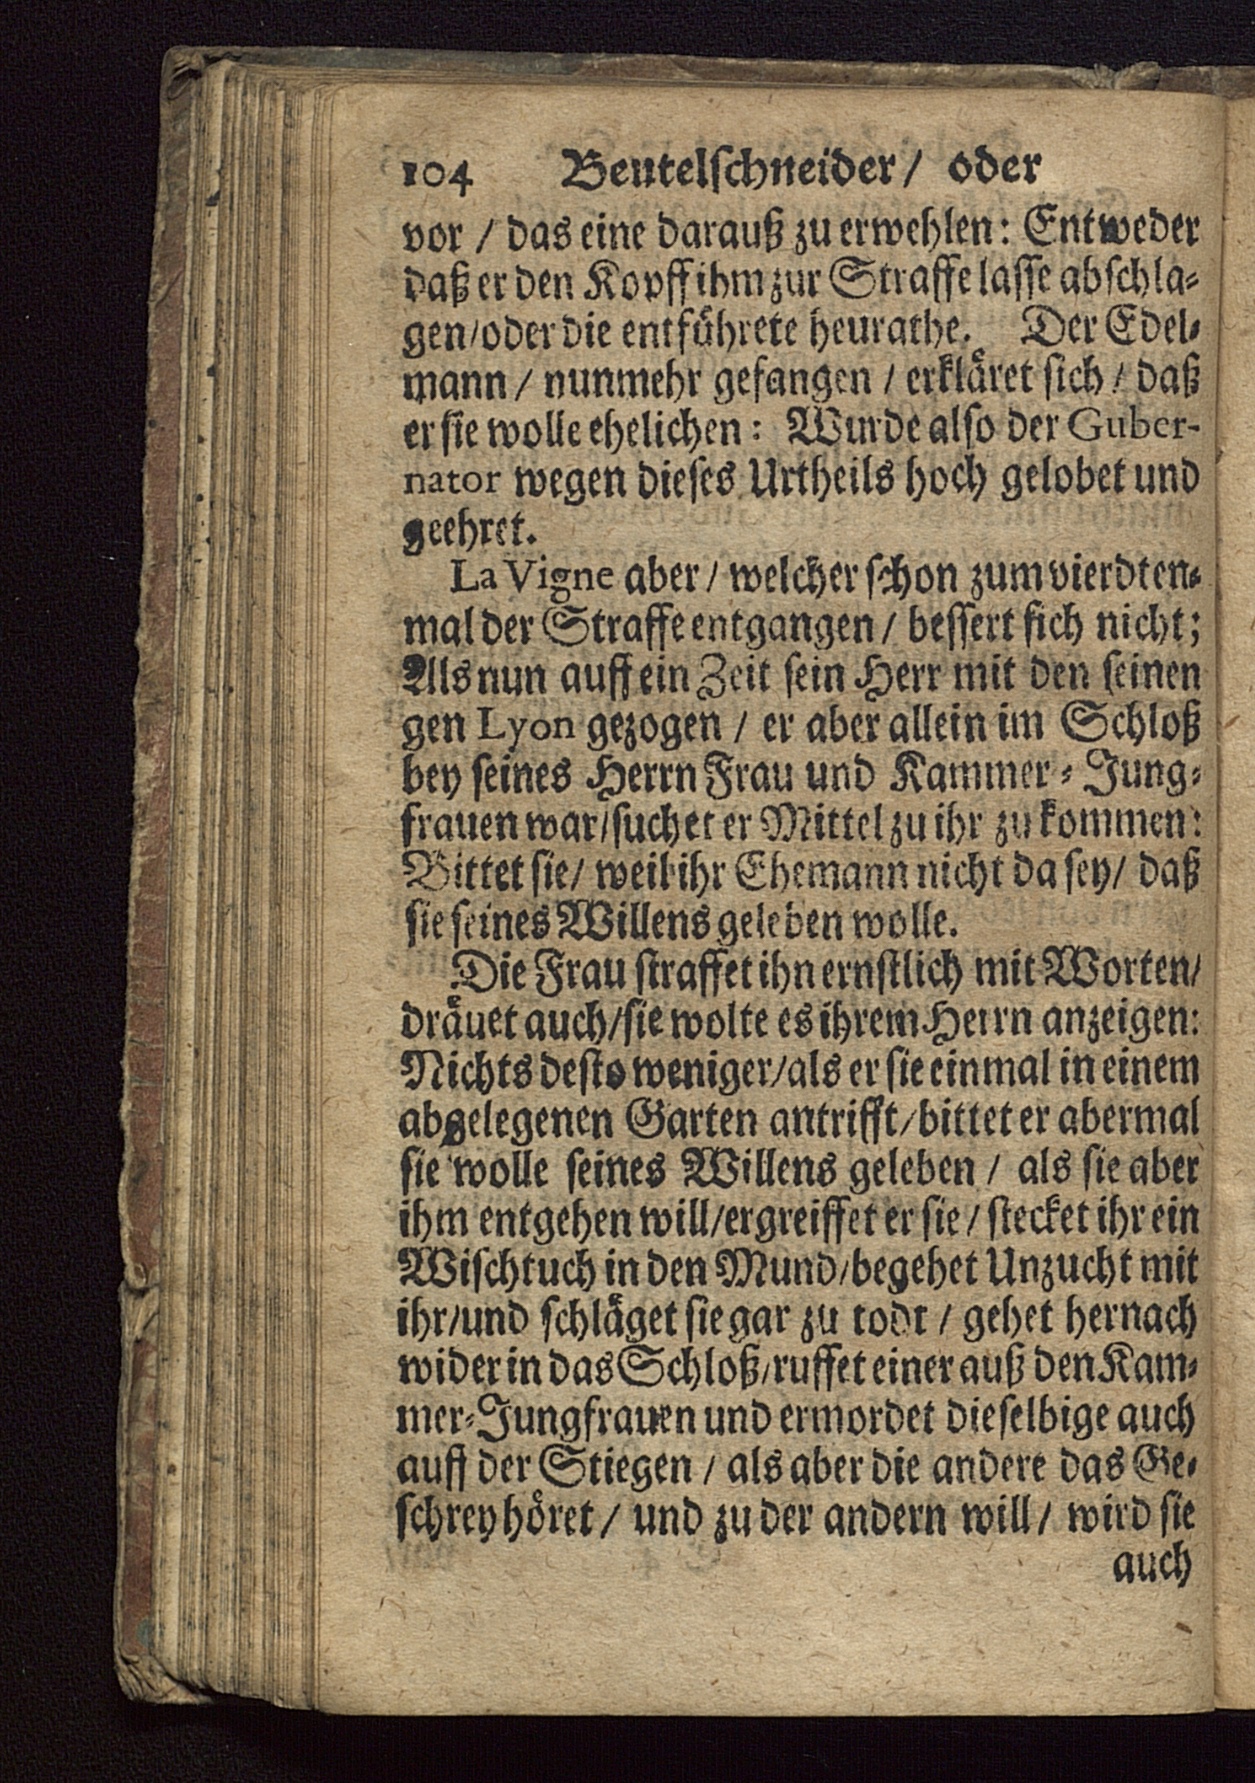 104 Beutelschneider / oder
vor / das eine darauß zu erwehlen: Entweder
daß er den Kopff ihm zur Straffe lasse abschla-
gen/oder die entführete heurathe. Der Edel-
mann / nunmehr gefangen / erkläret sich / daß
er sie wolle ehelichen: Wurde also der Guber-
nator wegen dieses Urtheils hoch gelobet und
geehret.
La Vigne aber / welcher schon zum vierdten-
mal der Straffe entgangen / bessert sich nicht;
Als nun auff ein Zeit sein Herr mit den seinen
gen Lyon gezogen / er aber allein im Schloß
bey seines Herrn Frau und Kammer-Jung-
frauen war/suchet er Mittel zu ihr zu kommen:
Bittet sie/ weil ihr Ehemann nicht da sey/ daß
sie seines Willens geleben wolle.
Die Frau straffet ihn ernstlich mit Worten/
dräuet auch/sie wolte es ihrem Herrn anzeigen:
Nichts desto weniger/als er sie einmal in einem
abgelegenen Garten antrifft/bittet er abermal
sie wolle seines Willens geleben / als sie aber
ihm entgehen will/ergreiffet er sie/ stecket ihr ein
Wischtuch in den Mund/begehet Unzucht mit
ihr/und schläget sie gar zu todt / gehet hernach
wider in das Schloß/ruffet einer auß den Kam-
mer-Jungfrauen und ermordet dieselbige auch
auff der Stiegen / als aber die andere das Ge-
schrey höret / und zu der andern will / wird sie
auch